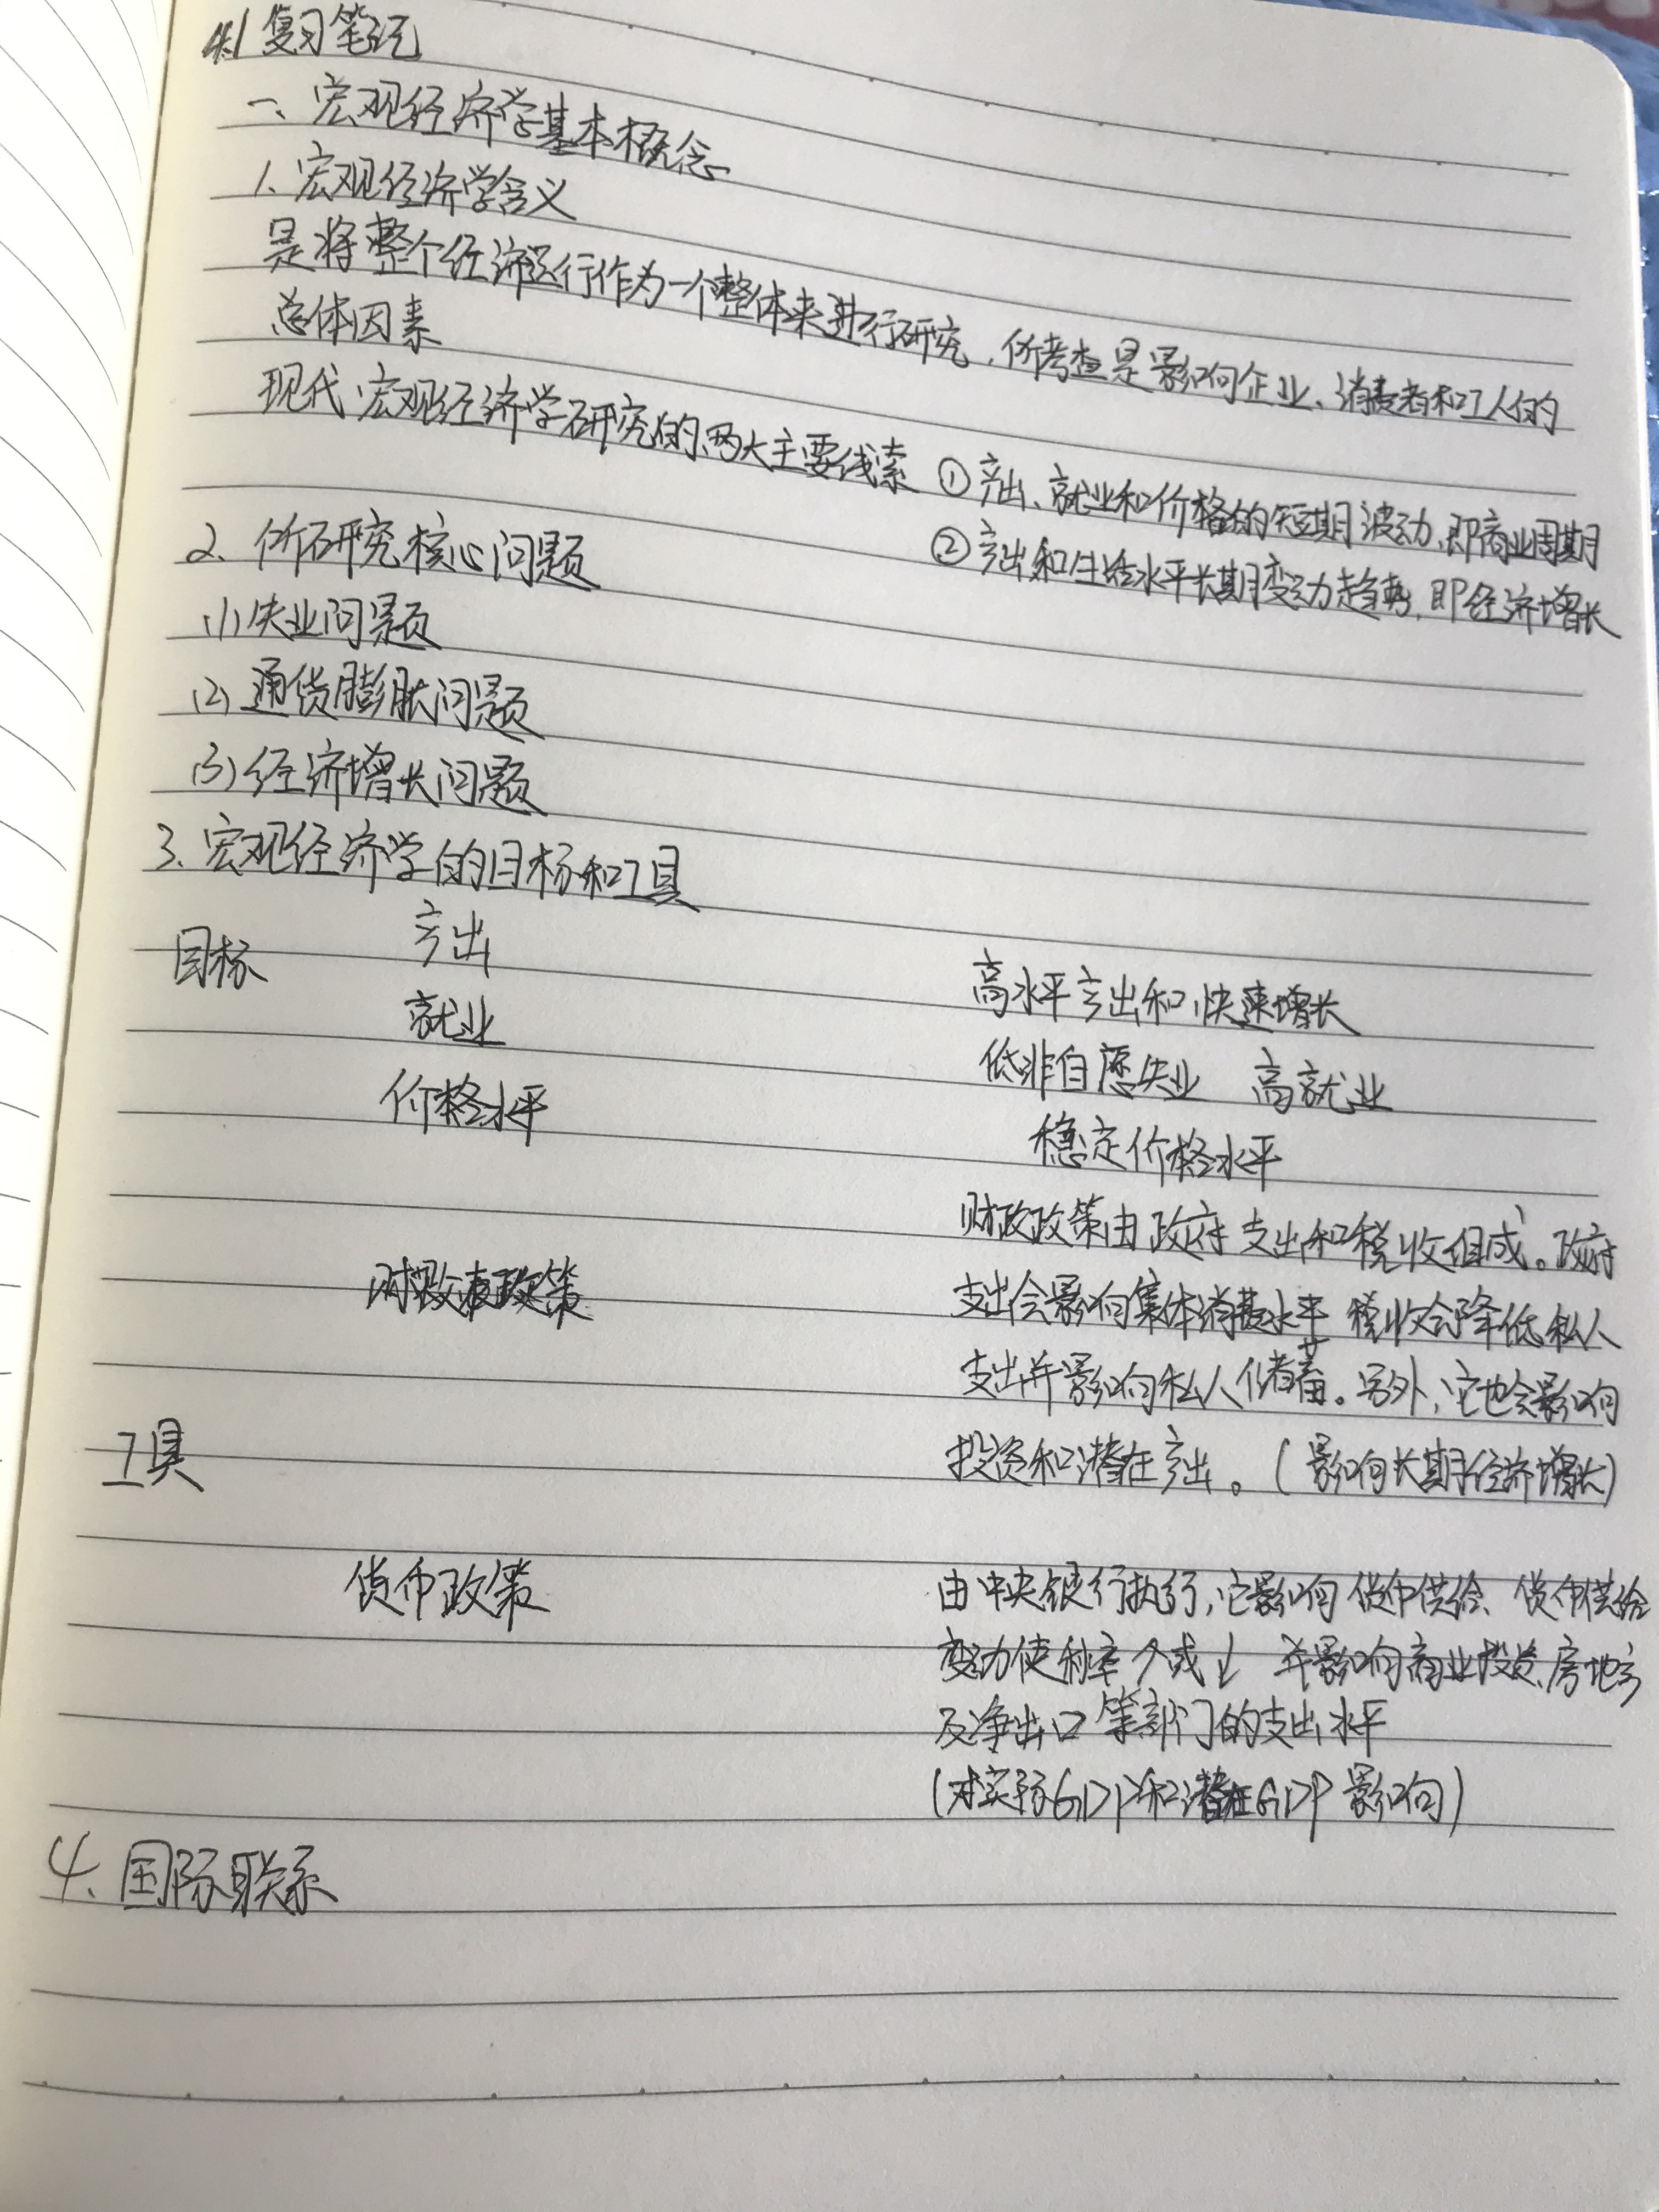 4.1 复习笔记
一、宏观经济学基本概念
1、宏观经济学含义
是将整个经济运行作为一个整体来进行研究,所考查是影响企业、消费者和工人的
总体因素
现代宏观经济学研究的两大主要线索 ①产出、就业和价格的短期波动,即商业周期
②产出和生活水平长期变动趋势,即经济增长
2、所研究核心问题
(1)失业问题
(2)通货膨胀问题
(3)经济增长问题
3、宏观经济学的目标和工具
目标 产出 高水平产出和快速增长
就业 低非自愿失业 高就业
价格水平 稳定价格水平
财政政策由政府支出和税收组成。政府
财政政策 支出会影响集体消费水平 税收会降低私人
支出并影响私人储蓄。另外,它也会影响
工具 投资和潜在产出。(影响长期经济增长)
货币政策 由中央银行执行,它影响货币供给、货币供给
变动使利率↑或↓ 并影响商业投资、房地产
及净出口等部门的支出水平
(对实际GDP和潜在GDP影响)
4、国际联系